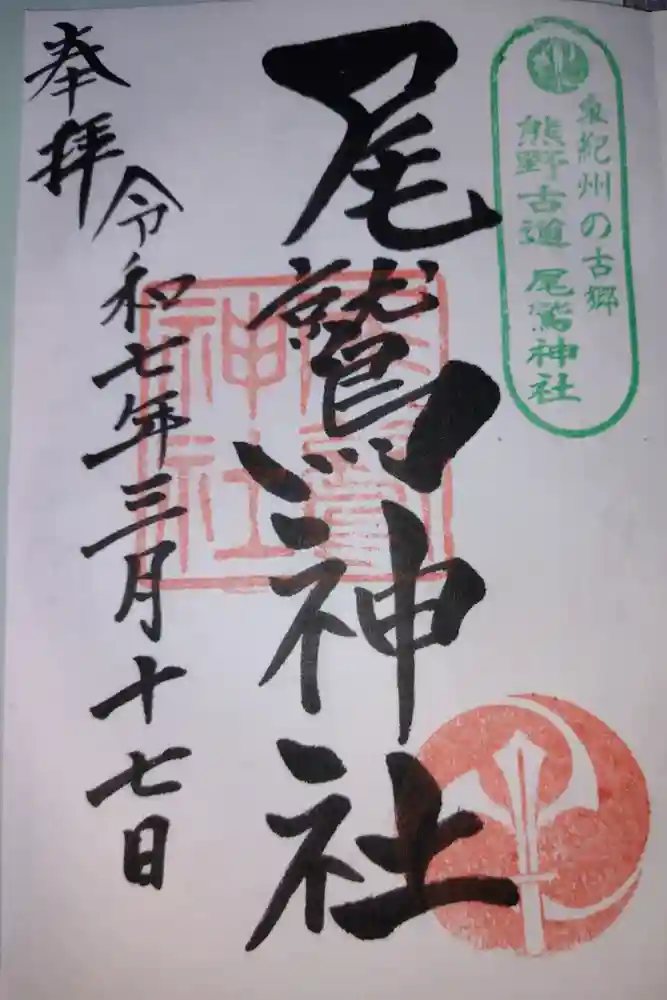 東紀州の古郷
熊野古道 尾鷲神社
尾鷲神社
奉拝
令和七年三月十七日